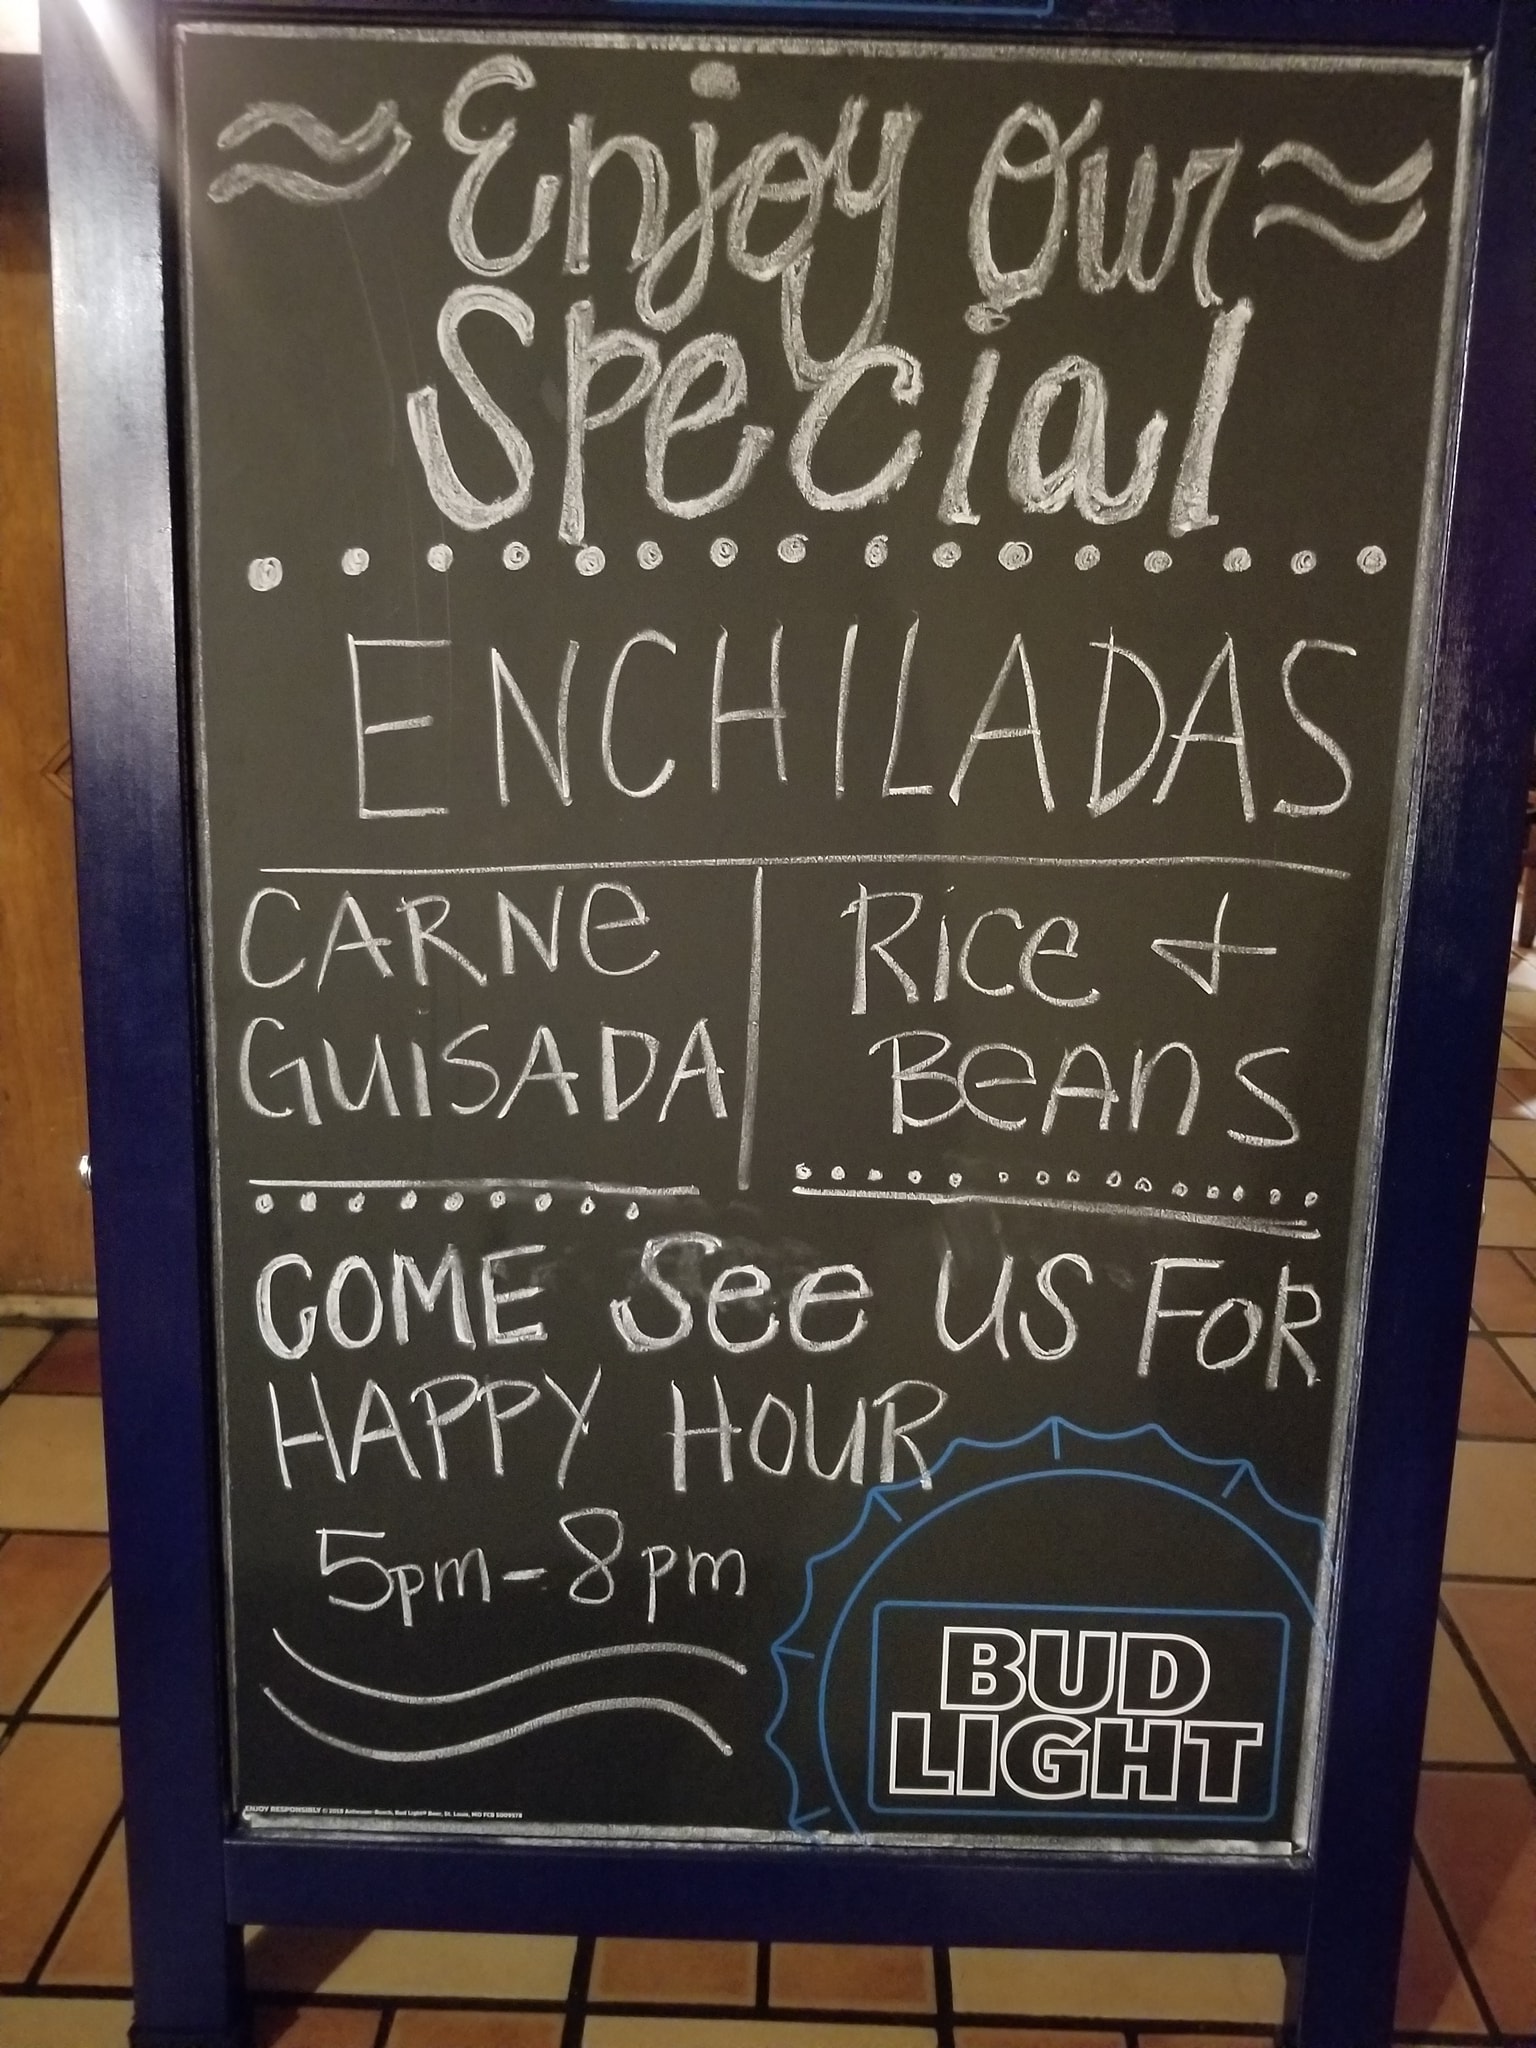 Enjoy Our
Special
ENCHILADAS
CARNE
GUISADA
RICE +
BEANS
COME See US FOR
HAPPY HOUR
5pm - 8pm
BUD
LIGHT
ENJOY RESPONSIBLY © 2018 Anheuser-Busch, Bud Light® Beer, St. Louis, MO